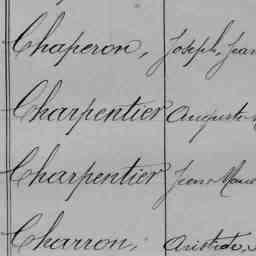 Chaperon, Joseph, Jean
Charpentier Auguste
Charpentier Jean Marie
Charron, Aristide,